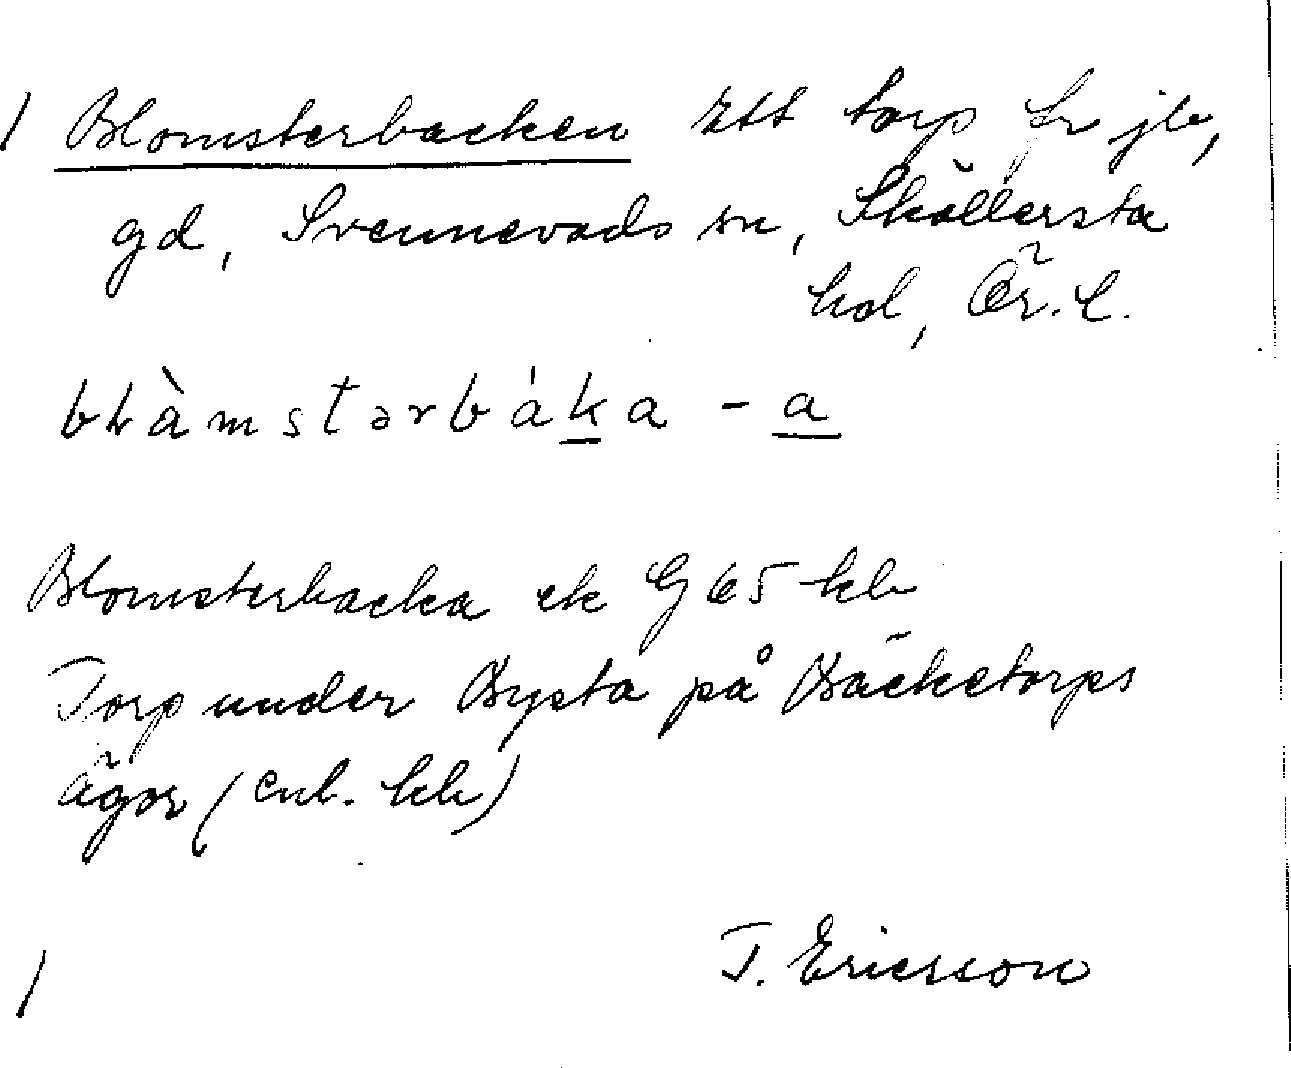 Blomsterbacken Ett torp fr jb,
gd, Svennevads sn, Sköllersta
hd, Ör. l.
bḷàmstərbáka - a
Blomsterbacka ek G 65 kb
Torp under Bysta på Bäcketorps
ägor (enl. kb)
T. Ericsson